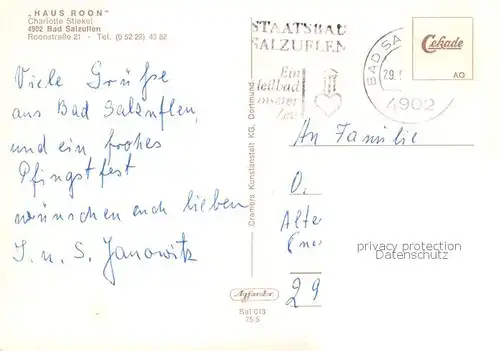 „HAUS ROON"
Charlotte Stiekel
4902 Bad Salzuflen
Roonstraße 21 · Tel. (0 52 22) 43 82
STAATSBAD
SALZUFLEN
Ein
Heilbad
unserer
Zeit
BAD SA
29.
4902
Cekade
AO
Viele Grüße
aus Bad Salzuflen,
und ein frohes
Pfingstfest
wünschen euch lieben
J. u. S. Janowitz
Cramers Kunstanstalt KG, Dortmund
An Familie
O.
Alte
29
privacy protection
Datenschutz
Agfacolor
Sal 013
75 5